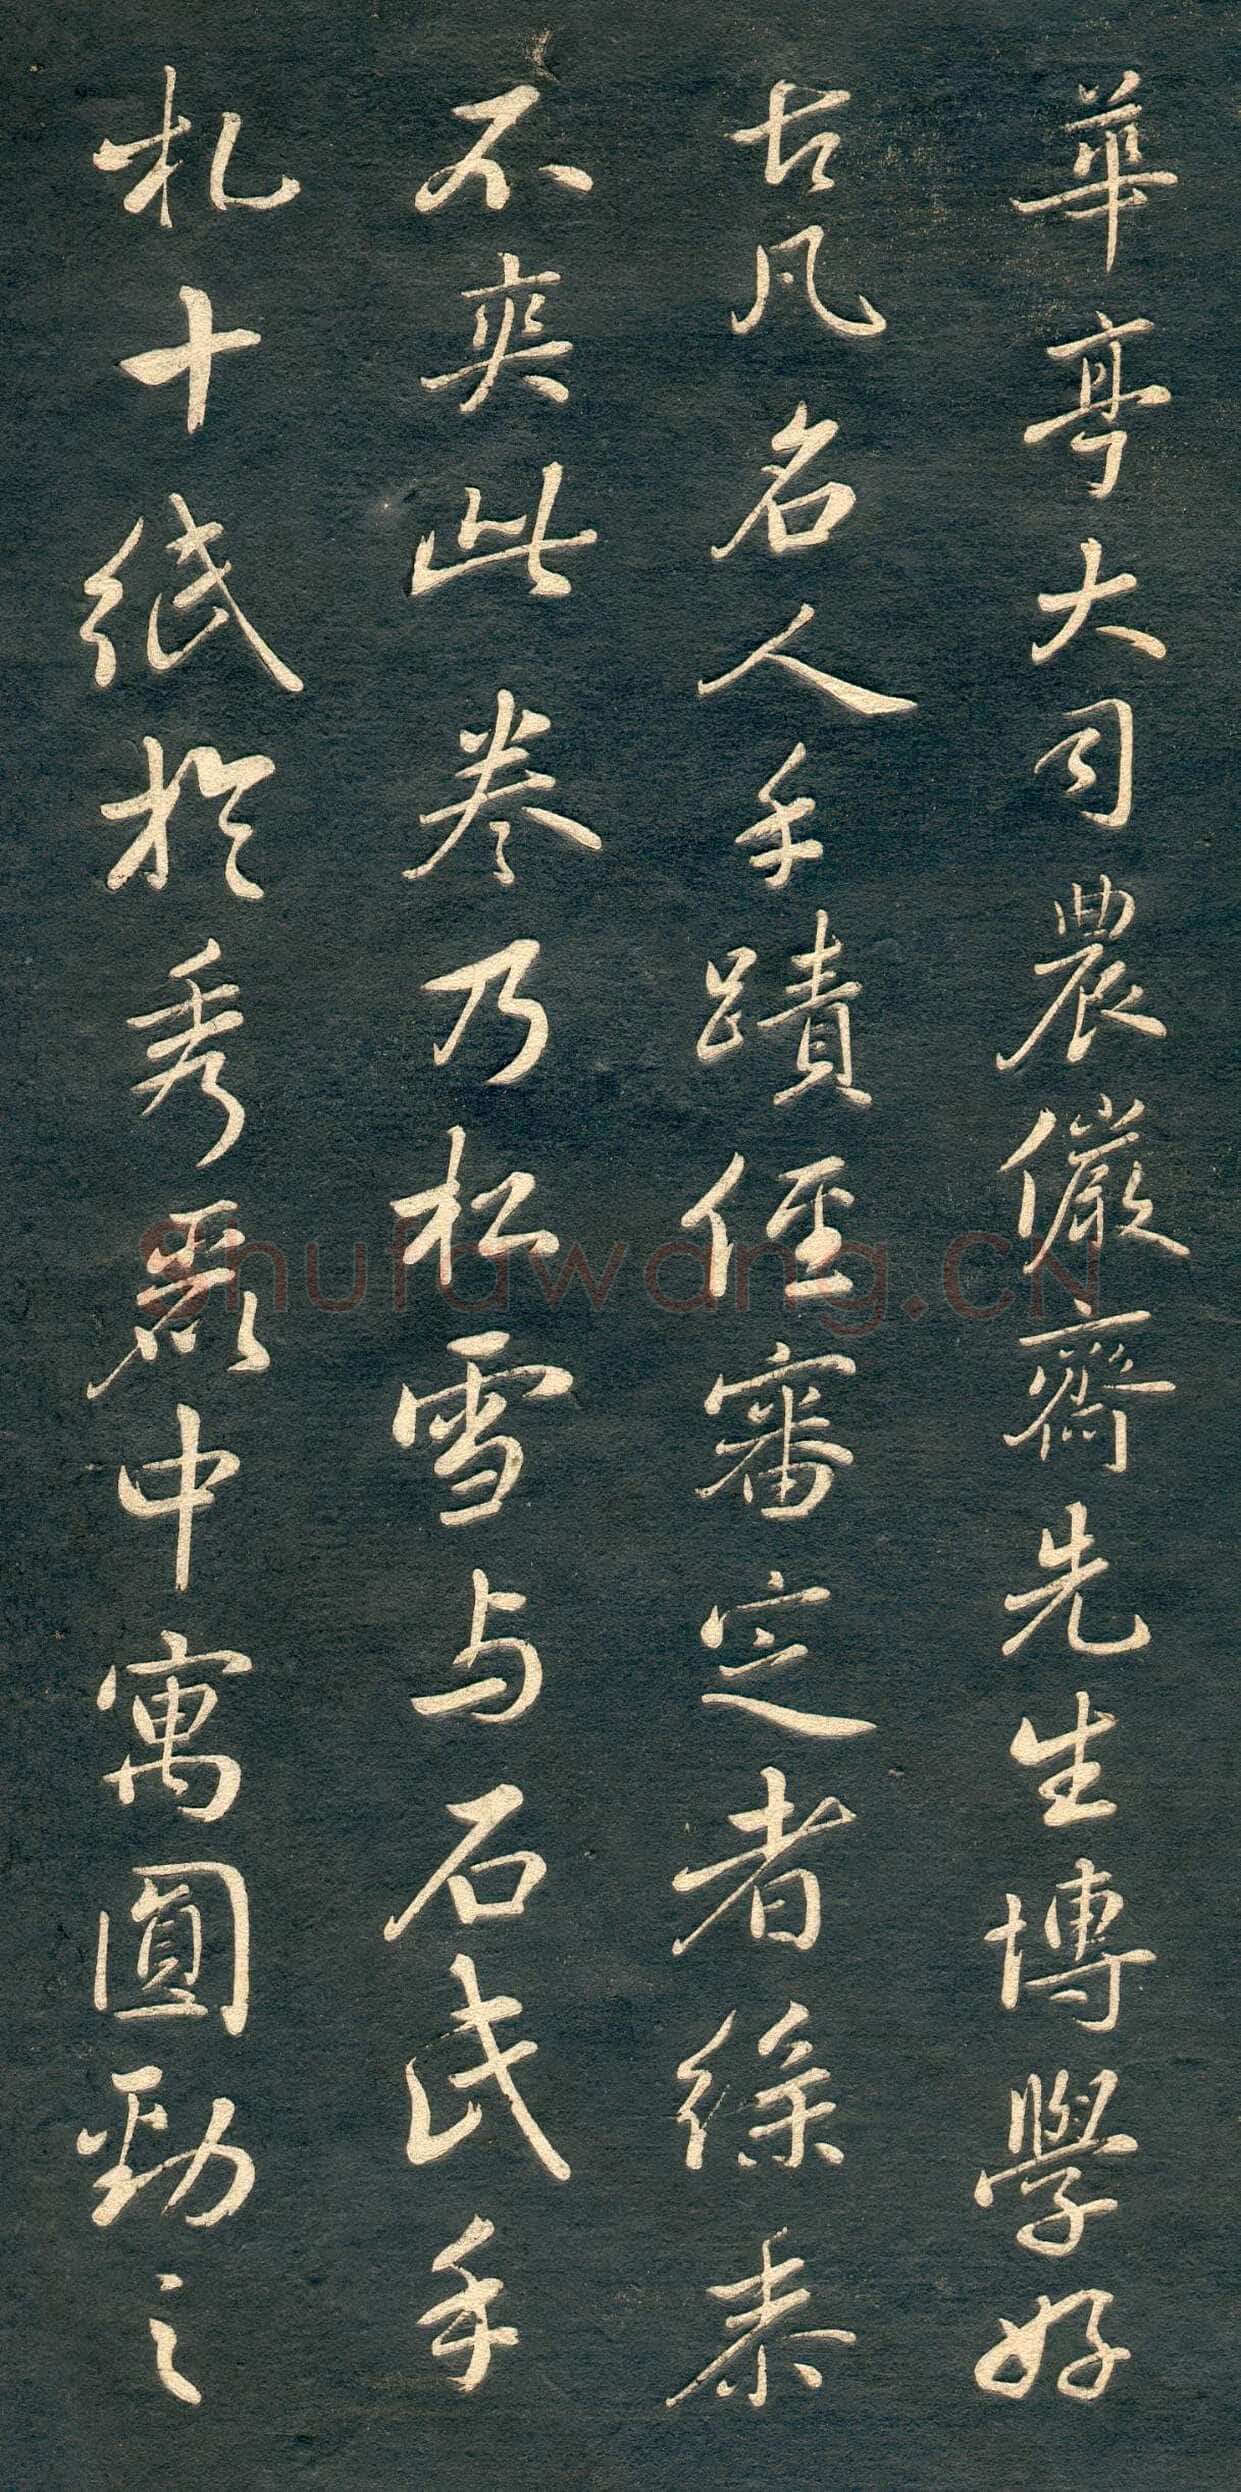 華亭大司農儼齋先生博學好
古凡名人手蹟經審定者絲黍
不爽此卷乃松雪与石民手
札十紙於秀麗中寓圓勁之
Shufawang.CN